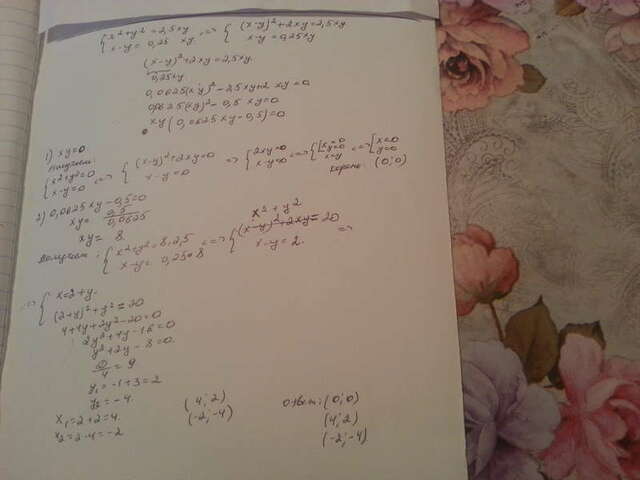 { x²+y² = 2,5xy x-y = 0,25 xy <=> { (x-y)²+2xy = 2,5xy x-y = 0,25xy
(x-y)²+2xy = 2,5xy.
0,25xy
0,0625(xy)² - 2,5xy+2xy = 0
0,0625(xy)² - 0,5xy = 0
xy(0,0625xy - 0,5) = 0
1) xy = 0
получаем:
{ x²+y² = 0 x-y = 0 <=> { (x-y)²+2xy = 0 x-y = 0 => { 2xy = 0 x-y = 0 <=> { [ x = 0 y = 0 x = y <=> [ x = 0 y = 0
корень: (0;0)
2) 0,0625xy - 0,5 = 0
xy = 0,5/0,0625
xy = 8
x² + y²
получаем: { x²+y² = 8·2,5 x-y = 0,25·8 <=> { (x-y)²+2xy = 20 x-y = 2. =>
=> { x = 2+y.
(2+y)²+y² = 20
4+4y+2y²-20 = 0
2y²+4y-16 = 0
y²+2y-8 = 0.
D/4 = 9
y₁ = -1+3 = 2
y₂ = -4.
x₁ = 2+2 = 4. (4;2)
x₂ = 2-4 = -2 (-2;-4)
Ответ: (0;0)
(4;2)
(-2;-4)